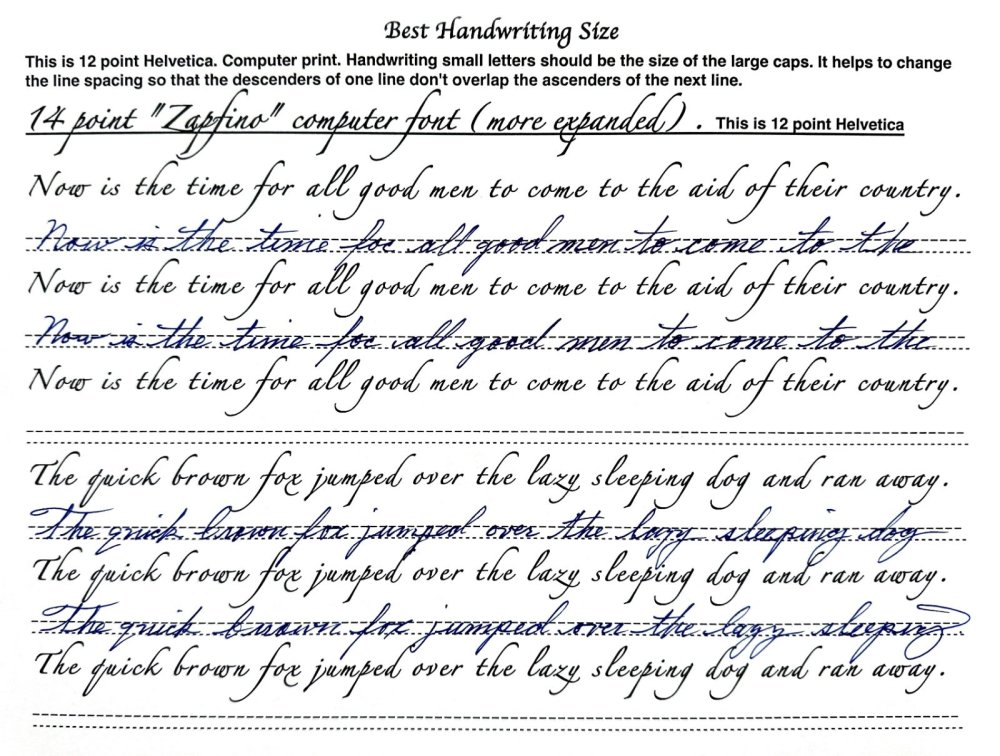 Best Handwriting Size
This is 12 point Helvetica. Computer print. Handwriting small letters should be the size of the large caps. It helps to change
the line spacing so that the descenders of one line don't overlap the ascenders of the next line.
14 point "Zapfino" computer font (more expanded) . This is 12 point Helvetica
Now is the time for all good men to come to the aid of their country.
Now is the time for all good men to come to the
Now is the time for all good men to come to the aid of their country.
Now is the time for all good men to come to the
Now is the time for all good men to come to the aid of their country.
The quick brown fox jumped over the lazy sleeping dog and ran away.
The quick brown fox jumped over the lazy sleeping dog
The quick brown fox jumped over the lazy sleeping dog and ran away.
The quick brown fox jumped over the lazy sleeping
The quick brown fox jumped over the lazy sleeping dog and ran away.